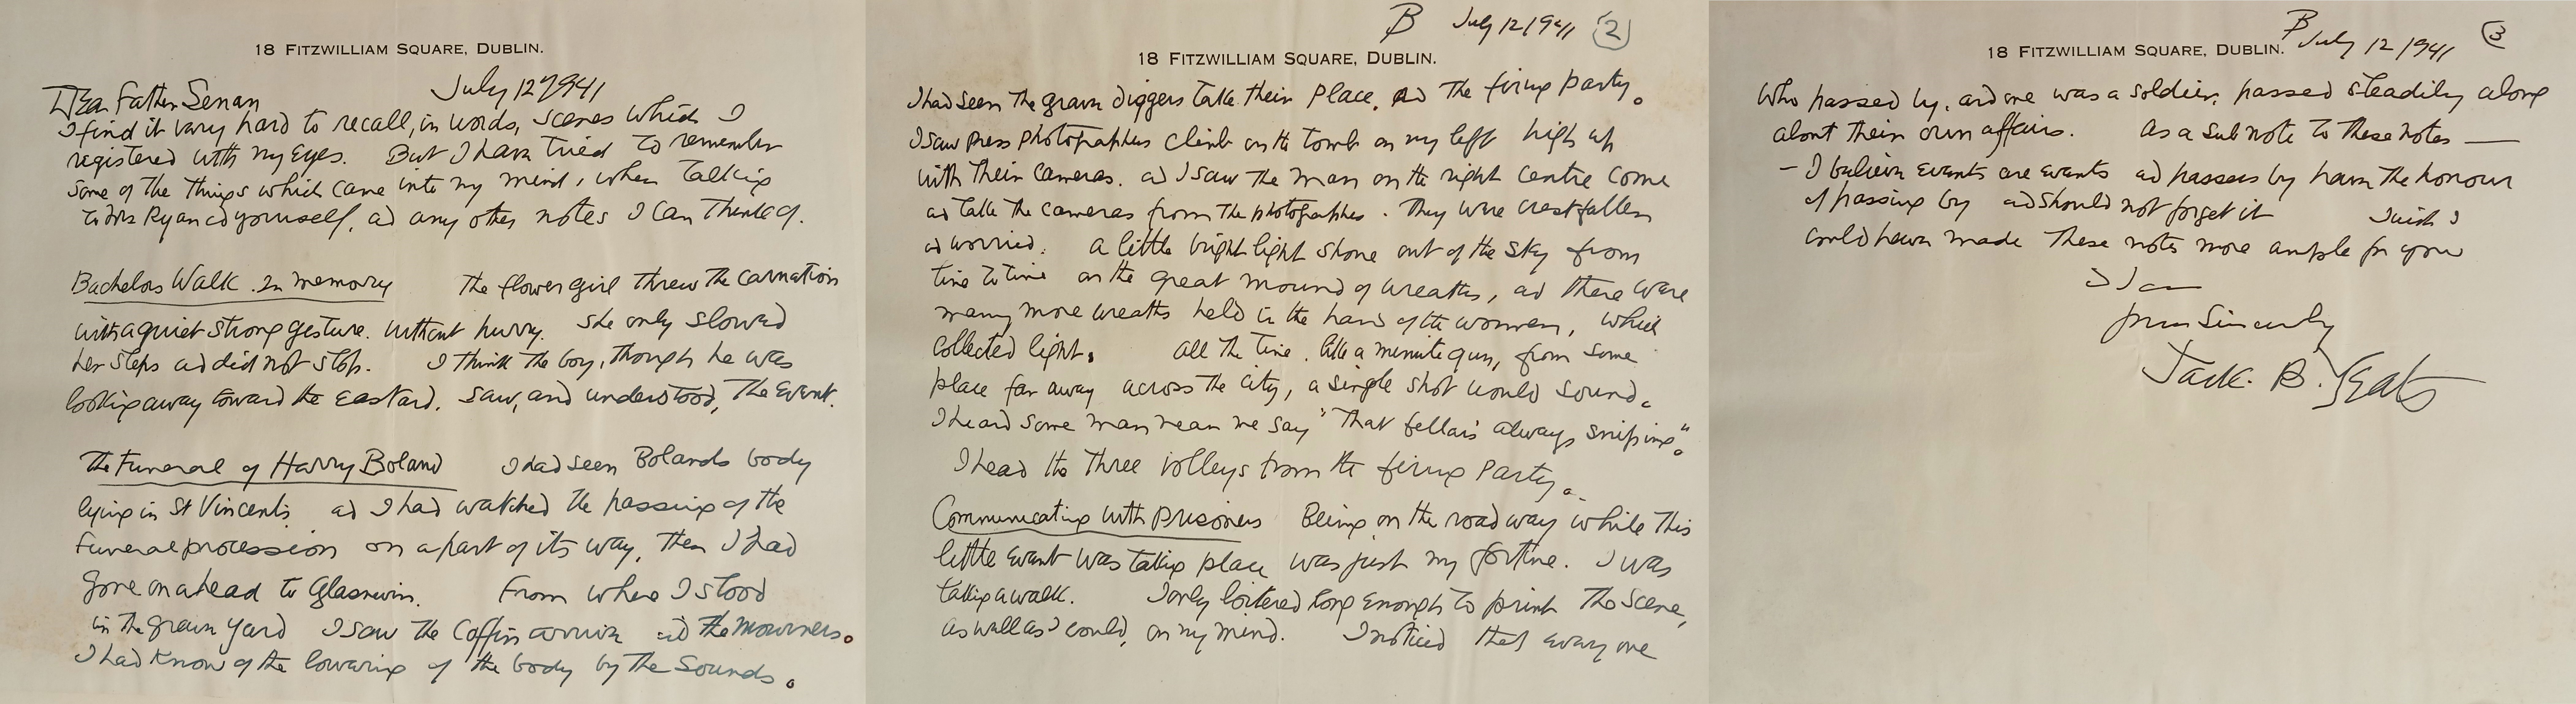 18 FITZWILLIAM SQUARE, DUBLIN.
July 12 1941
Dear Father Senan
I find it very hard to recall, in words, scenes which I
registered with my eyes. But I have tried to remember
some of the things which came into my mind, when talking
to Mrs Ryan ad yourself, ad any other notes I can think of.
Bachelors Walk. In memory The flower girl threw the carnation
with a quiet strong gesture. without hurry. She only slowed
her steps ad did not stop. I think the boy, though he was
looking away toward the eastard, saw, and understood, the event.
The Funeral of Harry Boland I had seen Bolands body
lying in St Vincents. ad I had watched the passing of the
Funeral procession on a part of its way, then I had
gone on ahead to Glasnevin. From where I stood
in the grave yard I saw the Coffin arrive ad the mourners.
I had know of the lowering of the body by the sounds.
B July 12 1941 2
18 FITZWILLIAM SQUARE, DUBLIN.
I had seen the grave diggers take their place, ad the firing party.
I saw press photographers climb on the tomb on my left high up
with their cameras. ad I saw the man on the right centre come
ad take the cameras from the photographers. They were crestfallen
ad worried. a little bright light shone out of the sky from
time to time on the great mound of wreaths, ad there were
many more wreaths held in the hands of the women, which
collected light. all the time. like a minute gun, from some
place far away across the city, a single shot would sound.
I heard some man near me say "That fella's always sniping".
I head the three volleys from the firing party.
Communicating with prisoners Being on the road way while this
little event was taking place was just my fortune. I was
taking a walk. I only loitered long enough to print the scene,
as well as I could, on my mind. I noticed that every one
B July 12 1941 3
18 FITZWILLIAM SQUARE, DUBLIN.
who passed by, ad one was a soldier, passed steadily along
about their own affairs. As a sub note to these notes —
- I believe events are events ad passers by have the honour
of passing by ad should not forget it I wish I
could have made these notes more ample for you
I am
yours sincerely
Jack. B. Yeats